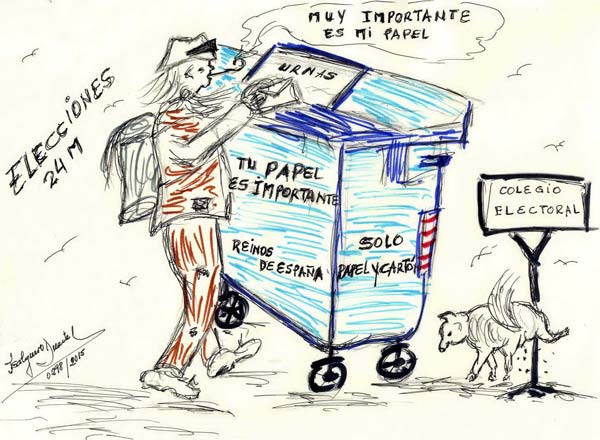 MUY IMPORTANTE
ES MI PAPEL
URNAS
ELECCIONES
24M
TU PAPEL
ES IMPORTANTE
REINOS
DE ESPAÑA
SOLO
PAPEL Y CARTÓN
COLEGIO
ELECTORAL
0298/2015